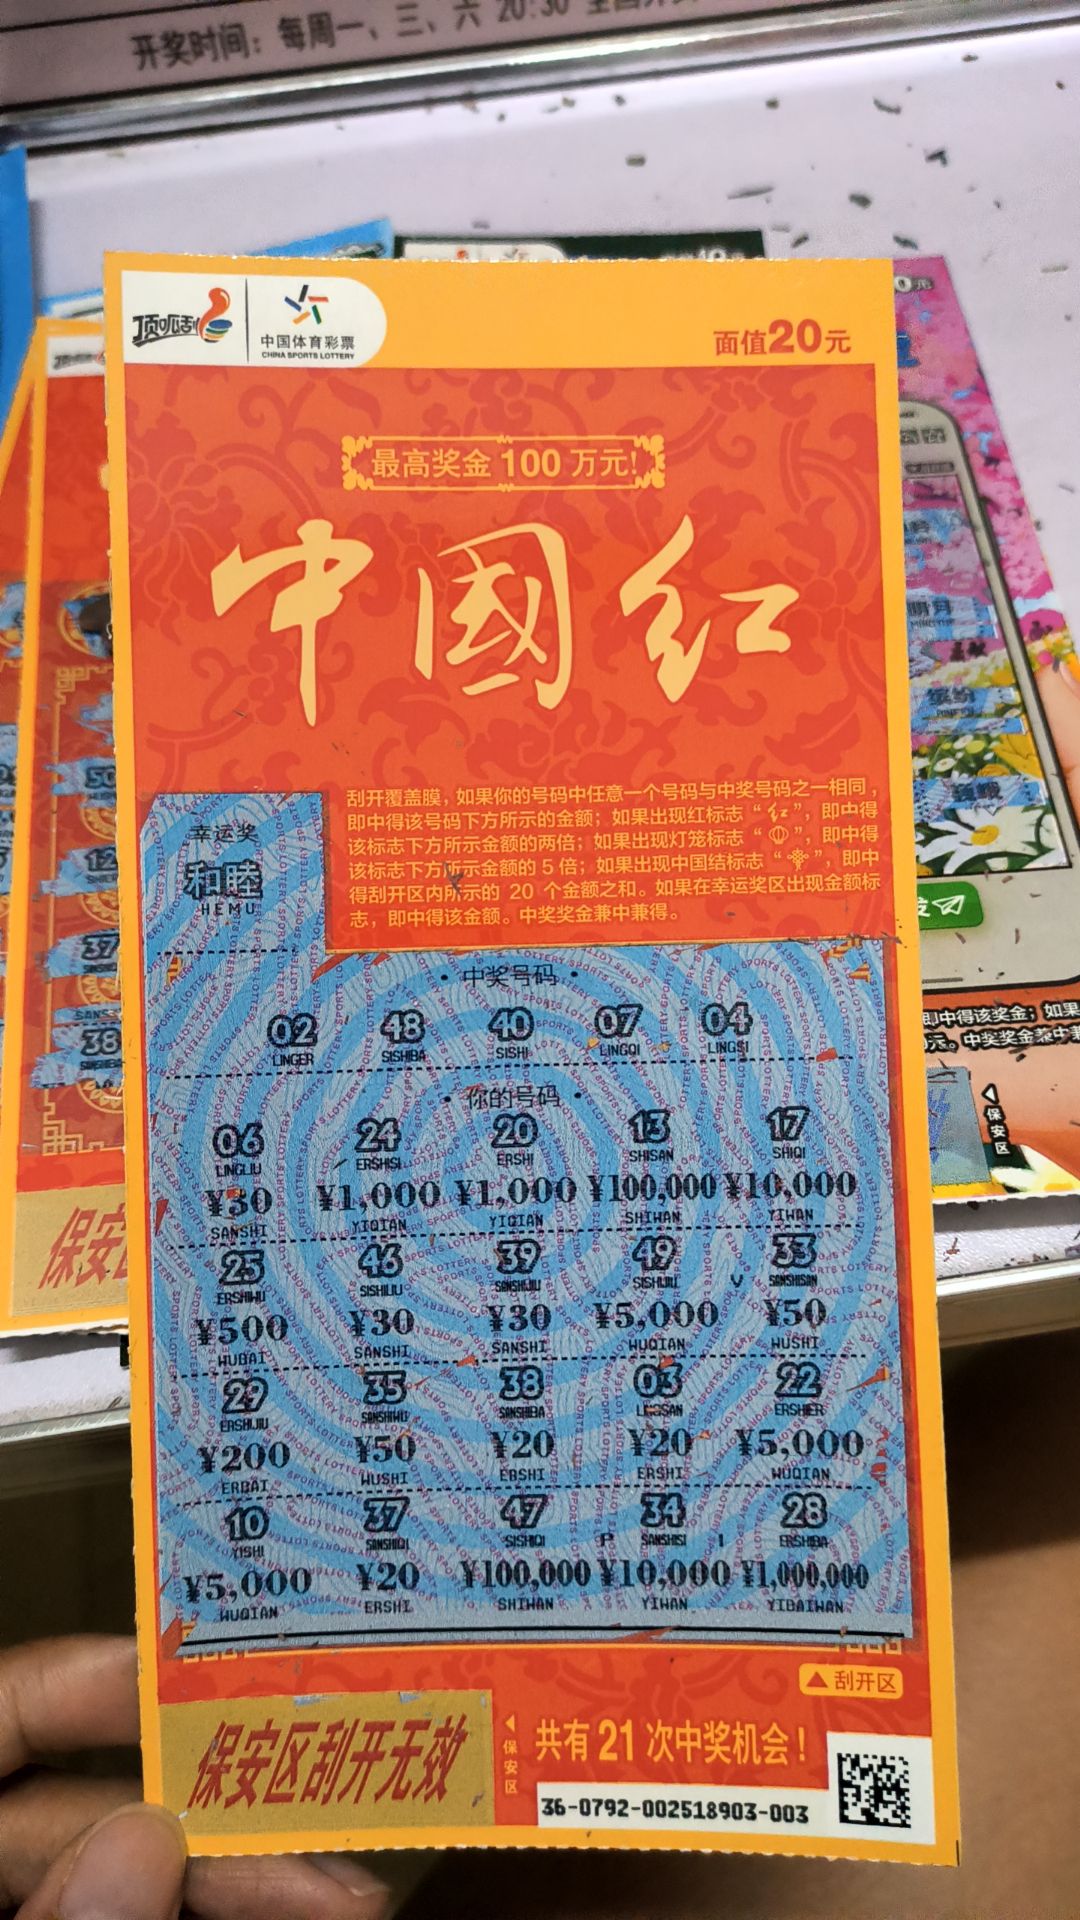 开奖时间：每周一、三、六 20:30
顶呱刮
中国体育彩票
CHINA SPORTS LOTTERY
面值20元
最高奖金 100 万元!
中國红
刮开覆盖膜，如果你的号码中任意一个号码与中奖号码之一相同，
即中得该号码下方所示的金额；如果出现红标志“红”，即中得
该标志下方所示金额的两倍；如果出现灯笼标志“”，即中得
该标志下方所示金额的 5 倍；如果出现中国结标志“”，即中
得刮开区内所示的 20 个金额之和。如果在幸运奖区出现金额标
志，即中得该金额。中奖奖金兼中兼得。
幸运奖
和睦
HEMU
· 中奖号码 ·
02 48 40 07 04
LINGER SISHIBA SISHI LINGQI LINGSI
· 你的号码 ·
06 24 20 13 17
LINGLIU ERSHISI ERSHI SHISAN SHIQI
¥30 ¥1,000 ¥1,000 ¥100,000 ¥10,000
SANSHI YIQIAN YIQIAN SHIWAN YIWAN
25 46 39 49 33
ERSHIWU SISHILIU SANSHIJIU SISHIJIU SANSHISAN
V
¥500 ¥30 ¥30 ¥5,000 ¥50
WUBAI SANSHI SANSHI WUQIAN WUSHI
29 35 38 03 22
ERSHIJIU SANSHIWU SANSHIBA LINGSAN ERSHIER
¥200 ¥50 ¥20 ¥20 ¥5,000
ERBAI WUSHI ERSHI ERSHI WUQIAN
10 37 47 34 28
YISHI SANSHIQI SISHIQI P SANSHISI I ERSHIBA
¥5,000 ¥20 ¥100,000 ¥10,000 ¥1,000,000
WUQIAN ERSHI SHIWAN YIWAN YIBAIWAN
▲刮开区
保安区刮开无效
保安区
共有 21 次中奖机会！
36-0792-002518903-003
缤纷
保安区
50
12
37
38